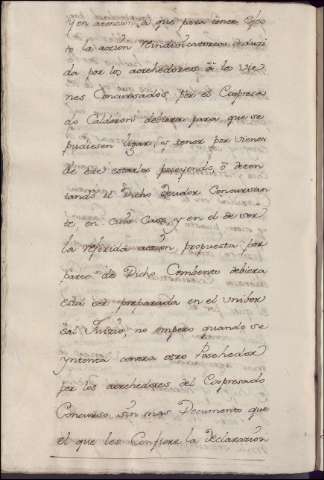 y en atencion, a que para tener efec
to la accion Vindicatoria deduci
da por los acrehedores à los vie
nes Concursados, por el Expresa
do Calderon debiera para que se
pudiesen ligar, y tenor por vienes
de este estarlos poseyendo, ô deten
tando el Dicho deudor Concursan
te, en cuio Caso, y en el de ser
la referida accion, propuesta por
parte de Dicho Combento debiera
esta ser preparada en el univer
sal Juicio, no empero quando se
yntenta contra otro Posehedor
por los acrehedores del Expresado
Concurso sin mas Documento que
el que les Confiere la declaracion